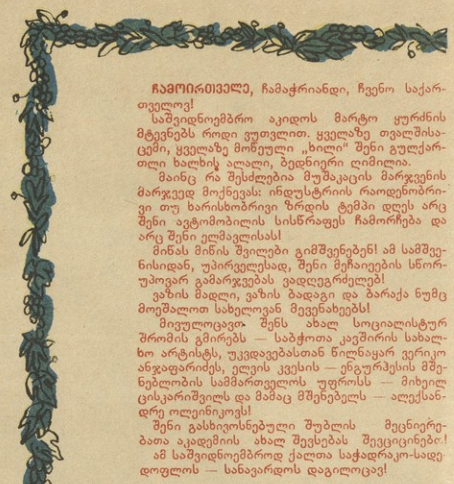 ჩამოირთველე, ჩამაჭრიანდი, ჩვენო საქარ-
თველოვ!
საშვიდნოემბრო აკიდოს მარტო ყურძნის
მტევნებს როდი ვუთვლით. ყველაზე თვალშისა-
ცემი, ყველაზე მოწეული „ხილი“ შენი გულქარ-
თლი ხალხის ალალი, ბედნიერი ღიმილია.
მაინც რა შესძლებია მუშაკაცის მარჯვენის
მარჯვედ მოქნევას: ინდუსტრიის რაოდენობრი-
ვი თუ ხარისხობრივი ზრდის ტემპი დღეს არც
შენი ავტომობილის სისწრაფეს ჩამორჩება და
არც შენი ელმავლისას!
მიწას მიწის შვილები გიმშვენებენ! ამ სამშვე-
ნისიდან, უპირველესად, შენი მეჩაიეების სწორ-
უპოვარ გამარჯვებას ვადღეგრძელებ!
ვაზის მადლი, ვაზის ბადაგი და ბარაქა ნუმც
მოეშალოთ სახელოვან მევენახეებს!
მივულოცავთ შენს ახალ სოციალისტურ
შრომის გმირებს — საბჭოთა კავშირის სახალ-
ხო არტისტს, უკვდავებასთან წილნაყარ ვერიკო
ანჯაფარიძეს, ელვის კვესის — ენგურჰესის მშე-
ნებლობის სამმართველოს უფროსს — მიხეილ
ცისკარიშვილს და მამაც მშენებელს — ალექსან-
დრე ოლეინიკოვს!
შენი გასხივოსნებული შუბლის მეცნიერე-
ბათა აკადემიის ახალ შევსებას შევციცინებთ!
ამ საშვიდნოემბროდ ქალთა საჭადრაკო-სადე-
დოფლოს — სანავარდოს დაგილოცავ!